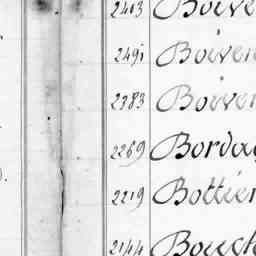 2413 Boive
2491 Boiven
2383 Boiven
2269 Borda
2219 Bottier
2144 Bouch